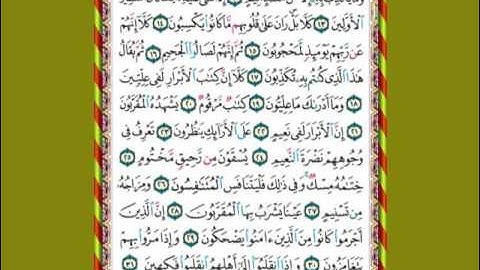 ٱلْأَوَّلِينَ ١٣ كَلَّا بَلْ رَانَ عَلَىٰ قُلُوبِهِم مَّا كَانُوا۟ يَكْسِبُونَ ١٤ كَلَّا إِنَّهُمْ
عَن رَّبِّهِمْ يَوْمَئِذٍ لَّمَحْجُوبُونَ ١٥ ثُمَّ إِنَّهُمْ لَصَالُوا۟ ٱلْجَحِيمِ ١٦ ثُمَّ يُقَالُ
هَٰذَا ٱلَّذِى كُنتُم بِهِۦ تُكَذِّبُونَ ١٧ كَلَّا إِنَّ كِتَٰبَ ٱلْأَبْرَارِ لَفِى عِلِّيِّينَ
١٨ وَمَآ أَدْرَىٰكَ مَا عِلِّيُّونَ ١٩ كِتَٰبٌ مَّرْقُومٌ ٢٠ يَشْهَدُهُ ٱلْمُقَرَّبُونَ
٢١ إِنَّ ٱلْأَبْرَارَ لَفِى نَعِيمٍ ٢٢ عَلَى ٱلْأَرَآئِكِ يَنظُرُونَ ٢٣ تَعْرِفُ فِى
وُجُوهِهِمْ نَضْرَةَ ٱلنَّعِيمِ ٢٤ يُسْقَوْنَ مِن رَّحِيقٍ مَّخْتُومٍ ٢٥
خِتَٰمُهُۥ مِسْكٌ ۚ وَفِى ذَٰلِكَ فَلْيَتَنَافَسِ ٱلْمُتَنَٰفِسُونَ ٢٦ وَمِزَاجُهُۥ
مِن تَسْنِيمٍ ٢٧ عَيْنًا يَشْرَبُ بِهَا ٱلْمُقَرَّبُونَ ٢٨ إِنَّ ٱلَّذِينَ
أَجْرَمُوا۟ كَانُوا۟ مِنَ ٱلَّذِينَ ءَامَنُوا۟ يَضْحَكُونَ ٢٩ وَإِذَا مَرُّوا۟ بِهِمْ
يَتَغَامَزُونَ ٣٠ وَإِذَا ٱنقَلَبُوٓا۟ إِلَىٰٓ أَهْلِهِمُ ٱنقَلَبُوا۟ فَكِهِينَ ٣١